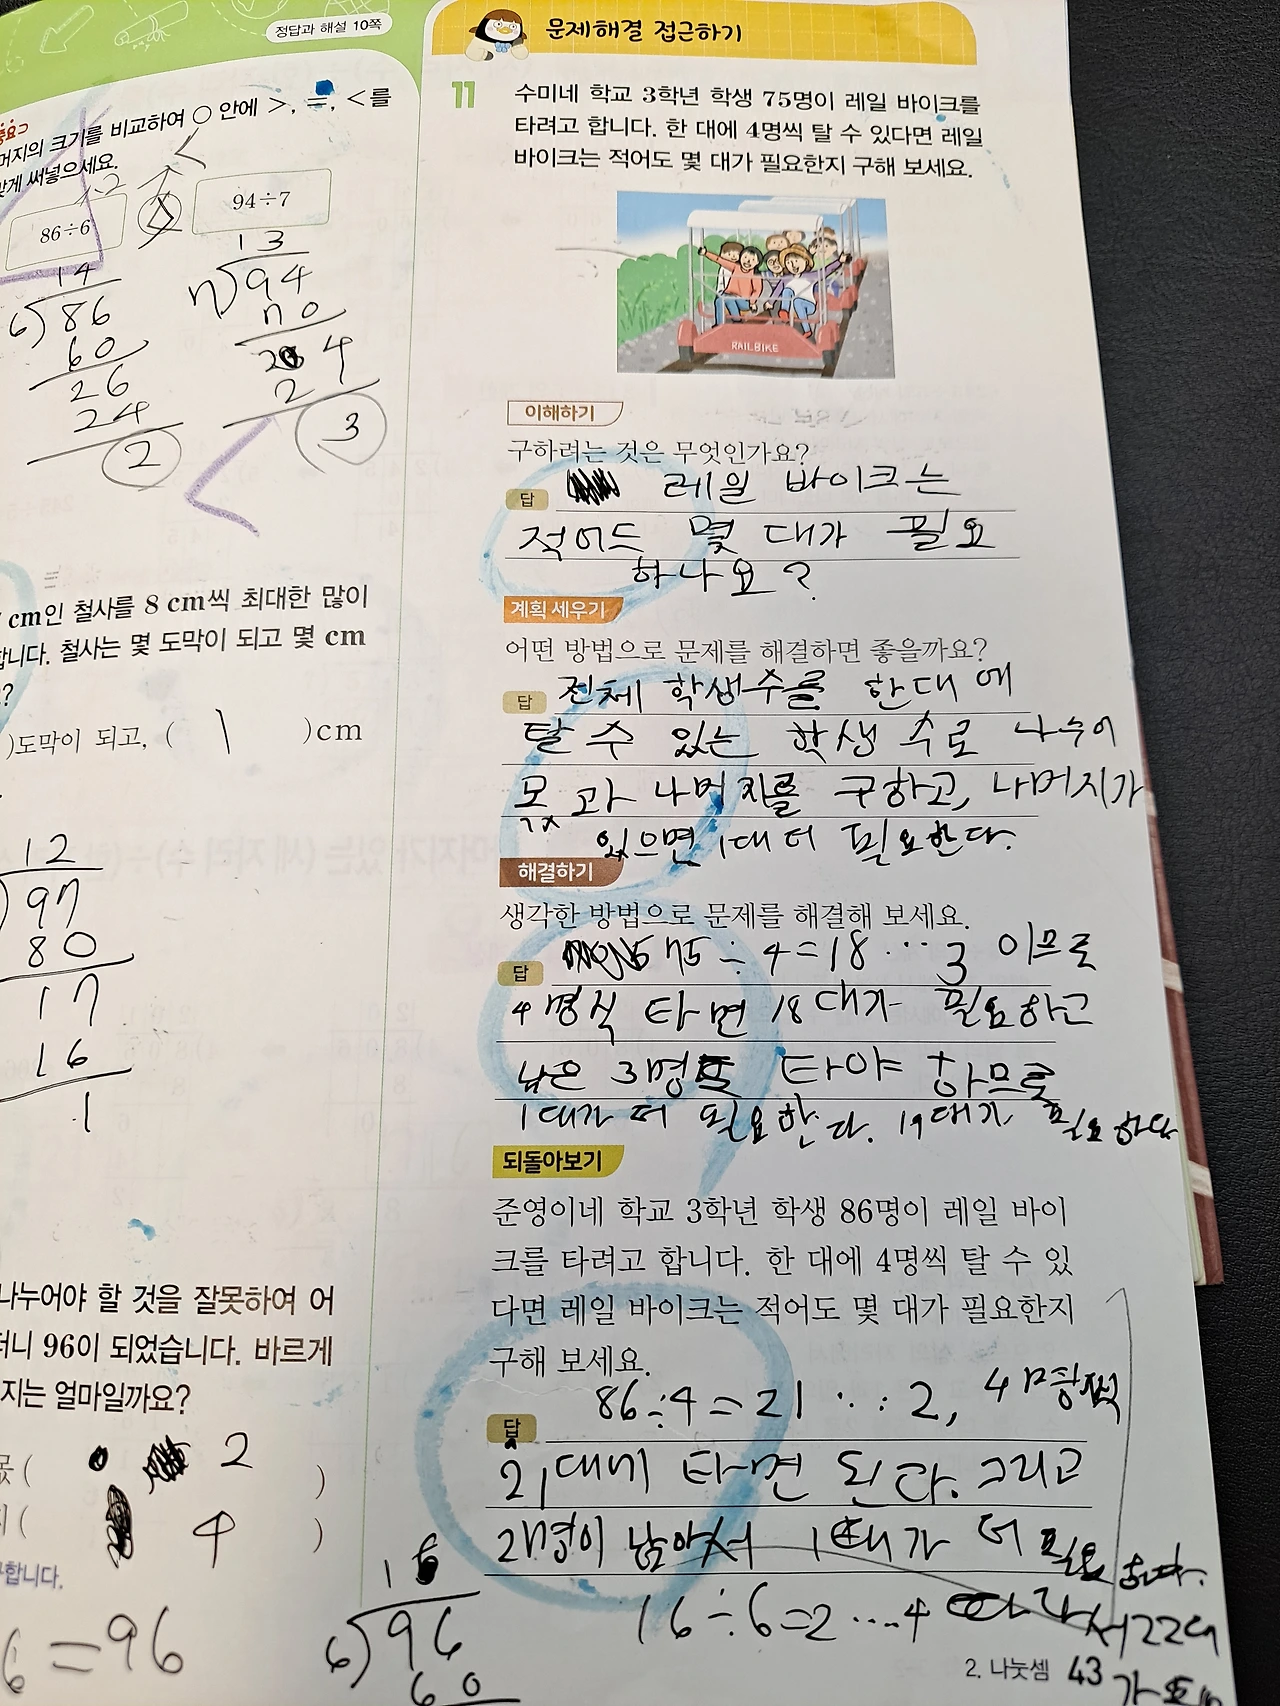 정답과 해설 10쪽
중요
머지의 크기를 비교하여 ○ 안에 >, =, <를
맞게 써넣으세요.
<
2
86÷6
94÷7
14
6)86
60
26
24
2
13
7)94
70
24
2
3
<
cm인 철사를 8 cm씩 최대한 많이
합니다. 철사는 몇 도막이 되고 몇 cm
?
)도막이 되고, ( 1 )cm
12
)97
80
17
16
1
나누어야 할 것을 잘못하여 어
더니 96이 되었습니다. 바르게
지는 얼마일까요?
몫 ( 2 )
( 4 )
구합니다.
6=96
16
6)96
60
문제해결 접근하기
11 수미네 학교 3학년 학생 75명이 레일 바이크를
타려고 합니다. 한 대에 4명씩 탈 수 있다면 레일
바이크는 적어도 몇 대가 필요한지 구해 보세요.
RAILBIKE
이해하기
구하려는 것은 무엇인가요?
답 레일 바이크는
적어도 몇 대가 필요
하나요?
계획 세우기
어떤 방법으로 문제를 해결하면 좋을까요?
답 전체 학생수를 한대에
탈 수 있는 학생 수로 나누어
몫과 나머지를 구하고, 나머지가
있으면 1대 더 필요한다.
해결하기
생각한 방법으로 문제를 해결해 보세요.
답 75÷4=18…3 이므로
4명식 타면 18대가 필요하고
남은 3명도 타야 하므로
1대가 더 필요한다. 19대가 필요하다
되돌아보기
준영이네 학교 3학년 학생 86명이 레일 바이
크를 타려고 합니다. 한 대에 4명씩 탈 수 있
다면 레일 바이크는 적어도 몇 대가 필요한지
구해 보세요.
86÷4=21…2, 4명씩
답
21대에 타면 된다. 그리고
2명이 남아서 1대가 더 필요하다.
16÷6=2…4 따라서 22대
가
2. 나눗셈 43